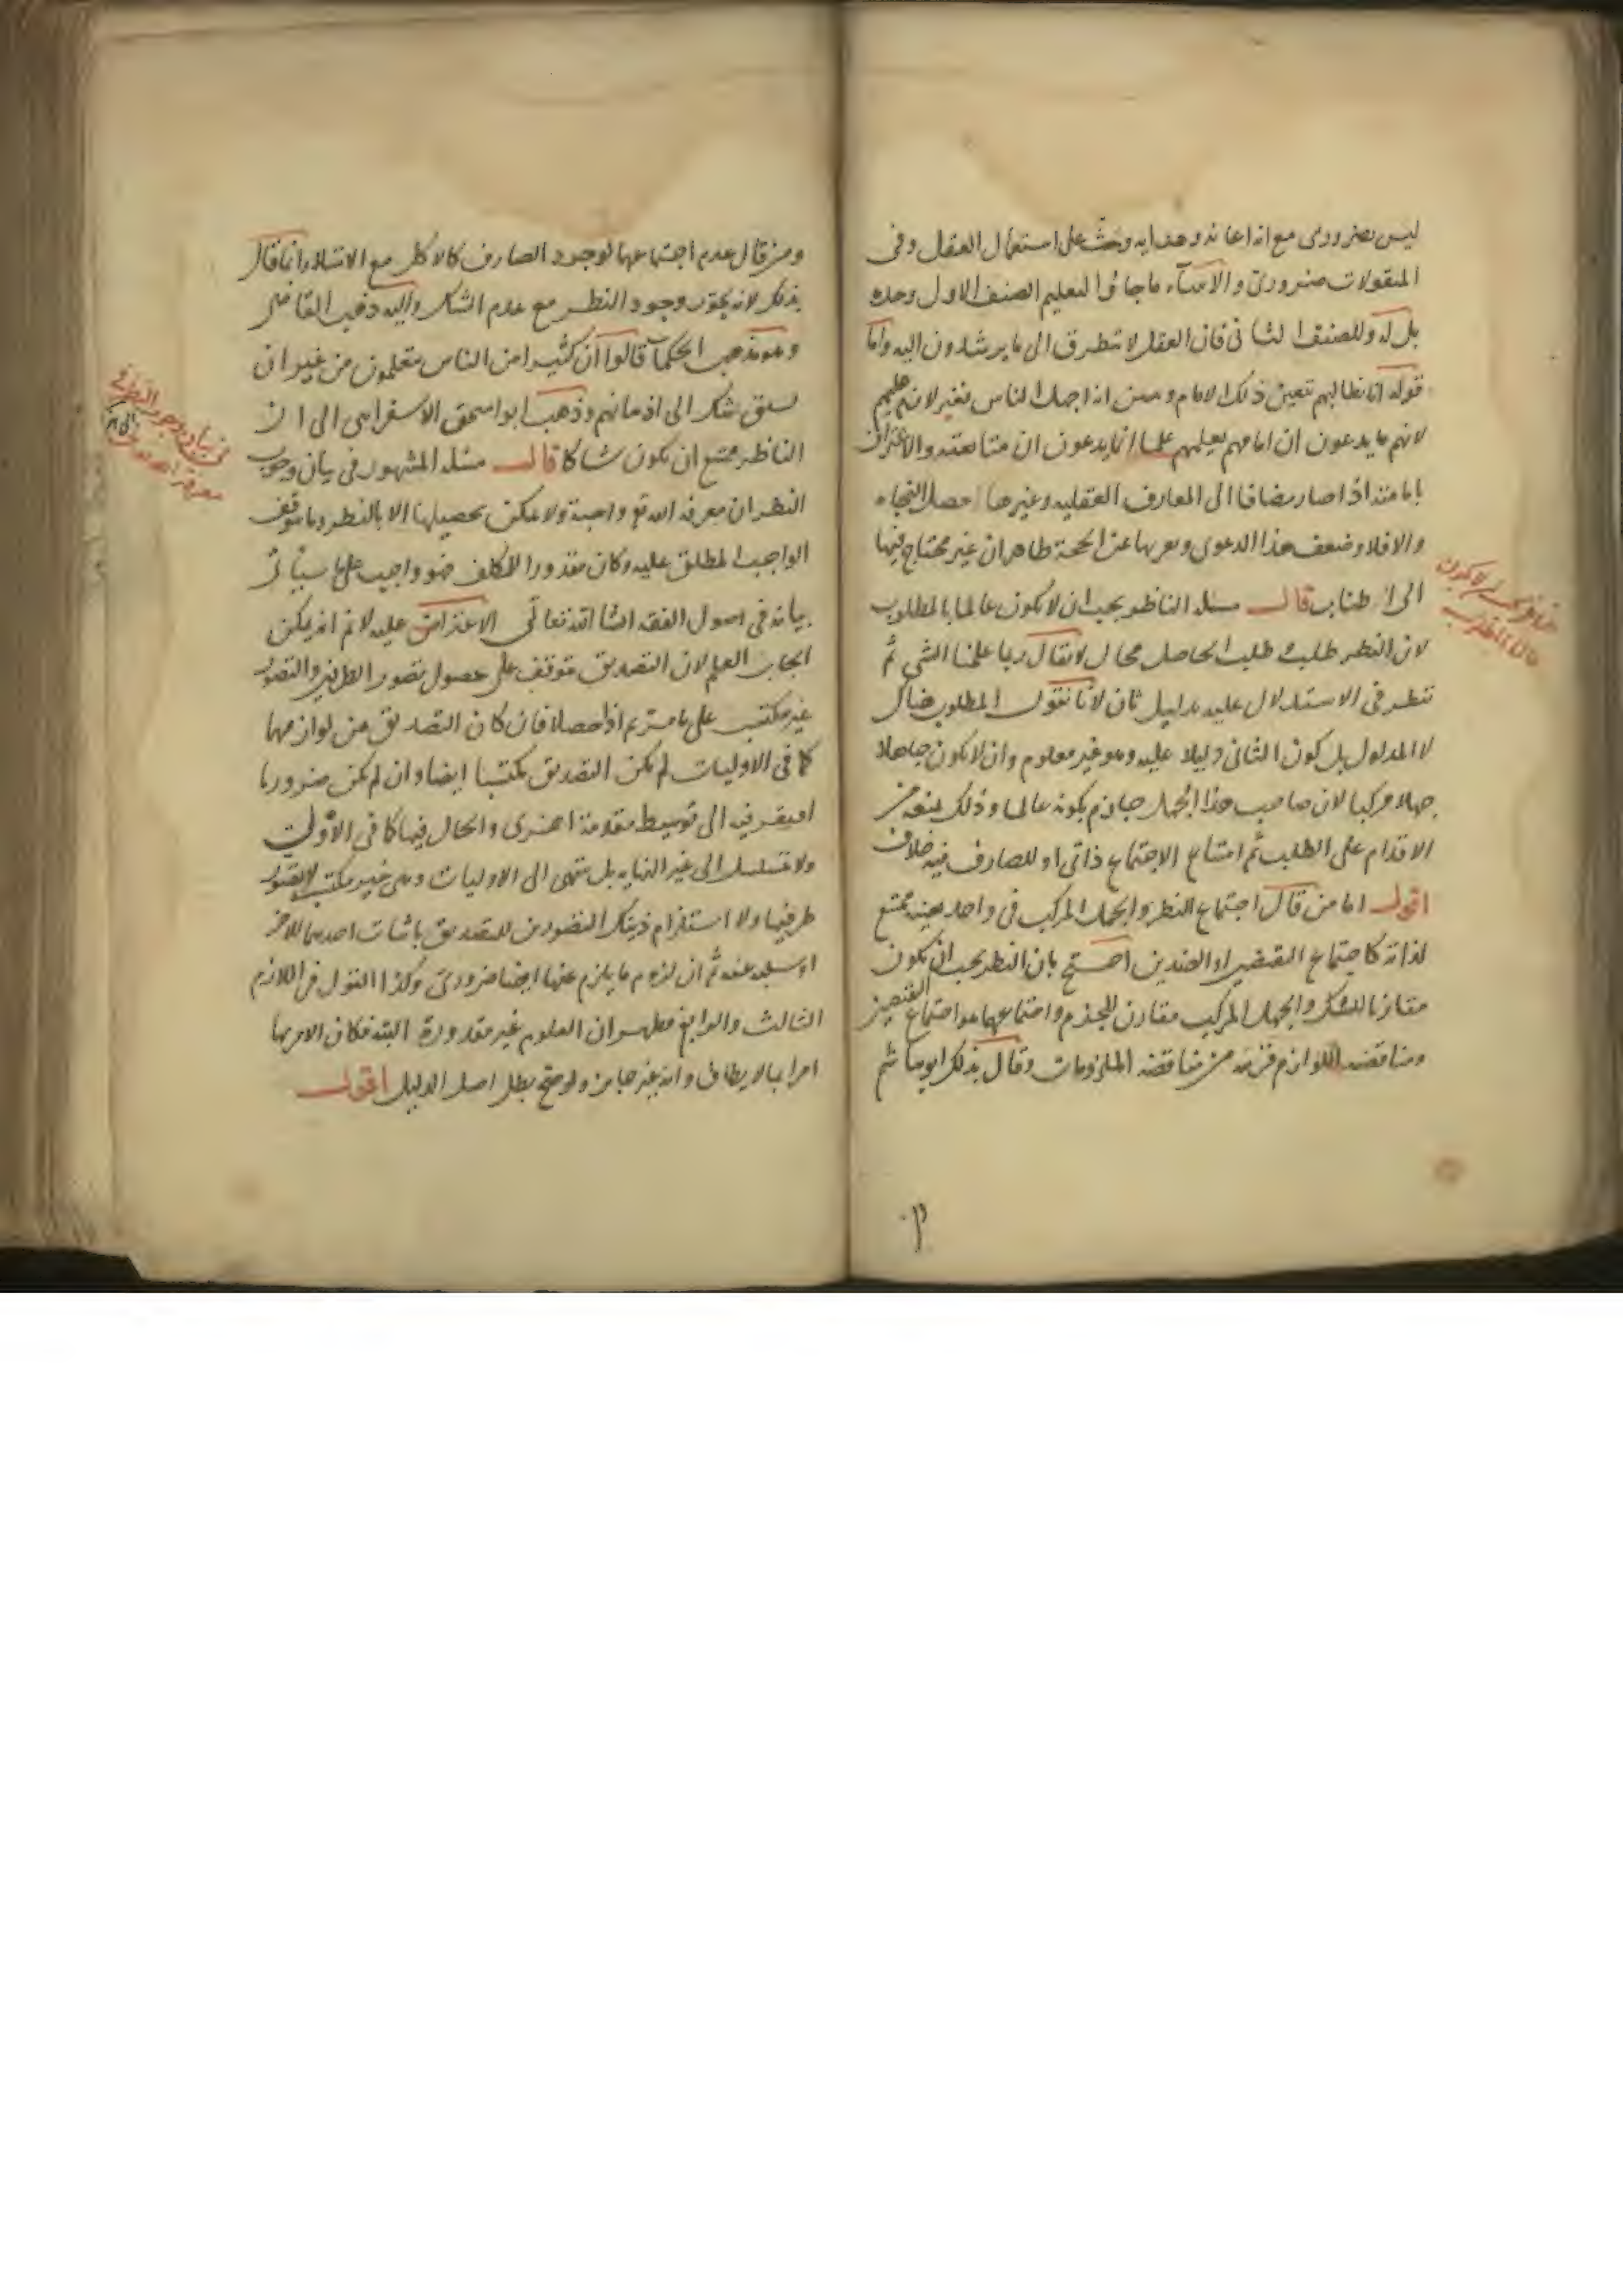 ليس بضروري مع انه اعانة وهداية وحث على استعمال العقل وفي
المنقولات ضروري والانبياء ما جاؤا لتعليم الصنف الاول وحده
بل له وللصنف الثاني فان العقل لا يتطرق الى ما يرشدون اليه واما
قوله انا نطالبهم بتعيين ذلك الامام و انه اجهل الناس فغير لازم عليهم
لانهم ما يدعون ان امامهم يعلمهم علما انما يدعون ان متابعته والاعتراف
بامامته اذا صار مضافا الى المعارف العقلية وغيرها حصل النجاة
والا فلا وضعف هذا الدعوى وعريها عن الحجة ظاهران غير محتاج فيها
الى اطناب قال مسئلة الناظر يجب ان لا يكون عالما بالمطلوب
لان النظر طلب وطلب الحاصل محال لا يقال ربما علمنا الشي ثم
ننظر في الاستدلال عليه بدليل ثان لانا نقول المطلوب هناك
لا المدلول بل كون الثاني دليلا عليه وهو غير معلوم وان لا يكون جاهلا
جهلا مركبا لان صاحب هذا الجهل جازم بكونه عالما وذلك يمنعه من
الاقدام على الطلب ثم امتناع الاجتماع ذاتي او للصارف فيه خلاف
اقول اما من قال اجتماع النظر والجهل المركب في واحد بعينه ممتنع
لذاته كاجتماع النقيضين او الضدين احتج بان النظر يجب ان يكون
مقارنا للشك والجهل المركب مقارن للجزم واجتماعهما هو اجتماع النقيضين
ومناقضة اللوازم من مناقضة الملزومات وقال بذلك ابو هاشم
ومن قال عدم اجتماعهما لوجود الصارف كالاكل مع الامتلاء انما قال
بذلك لانه يجوز وجود النظر مع عدم الشك واليه ذهب القاضي
وهو مذهب الحكماء قالوا ان كثيرا من الناس متعلمون من غير ان
يسبق شك الى اذهانهم وذهب ابو اسحق الاسفرايني الى ان
الناظر ممتنع ان يكون شاكا قال مسئلة المشهور في بيان وجوب
النظر ان معرفة الله تع واجبة ولا يمكن تحصيلها الا بالنظر وما يتوقف
الواجب المطلق عليه وكان مقدورا للمكلف فهو واجب على ما سيأتي
بيانه في اصول الفقه انشا الله تعالى الاعتراض عليه لا نم انه يمكن
ايجاب العلم لان التصديق متوقف على حصول تصور الطرفين والتصور
غير مكتسب على ما مر ثم اذا حصلا فان كان التصديق من لوازمهما
كما في الاوليات لم يكن التصديق مكتسبا ايضا وان لم يكن ضروريا
افتقر فيه الى توسيط مقدمة اخرى والحال فيها كما في الاولى
ولا يتسلسل الى غير النهاية بل ينتهي الى الاوليات وهي غير مكتسبة لا بتصور
طرفيها ولا استلزام ذينك التصورين للتصديق باثبات احدهما للاخر
او سلبه عنه ثم ان لزوم ما يلزم عنها ايضا ضروري وكذا القول في اللازم
الثالث والرابع فظهر ان العلوم غير مقدورة البتة فكان الامر بها
امرا بما لا يطاق وانه غير جايز ولو صح بطل اصل الدليل اقول